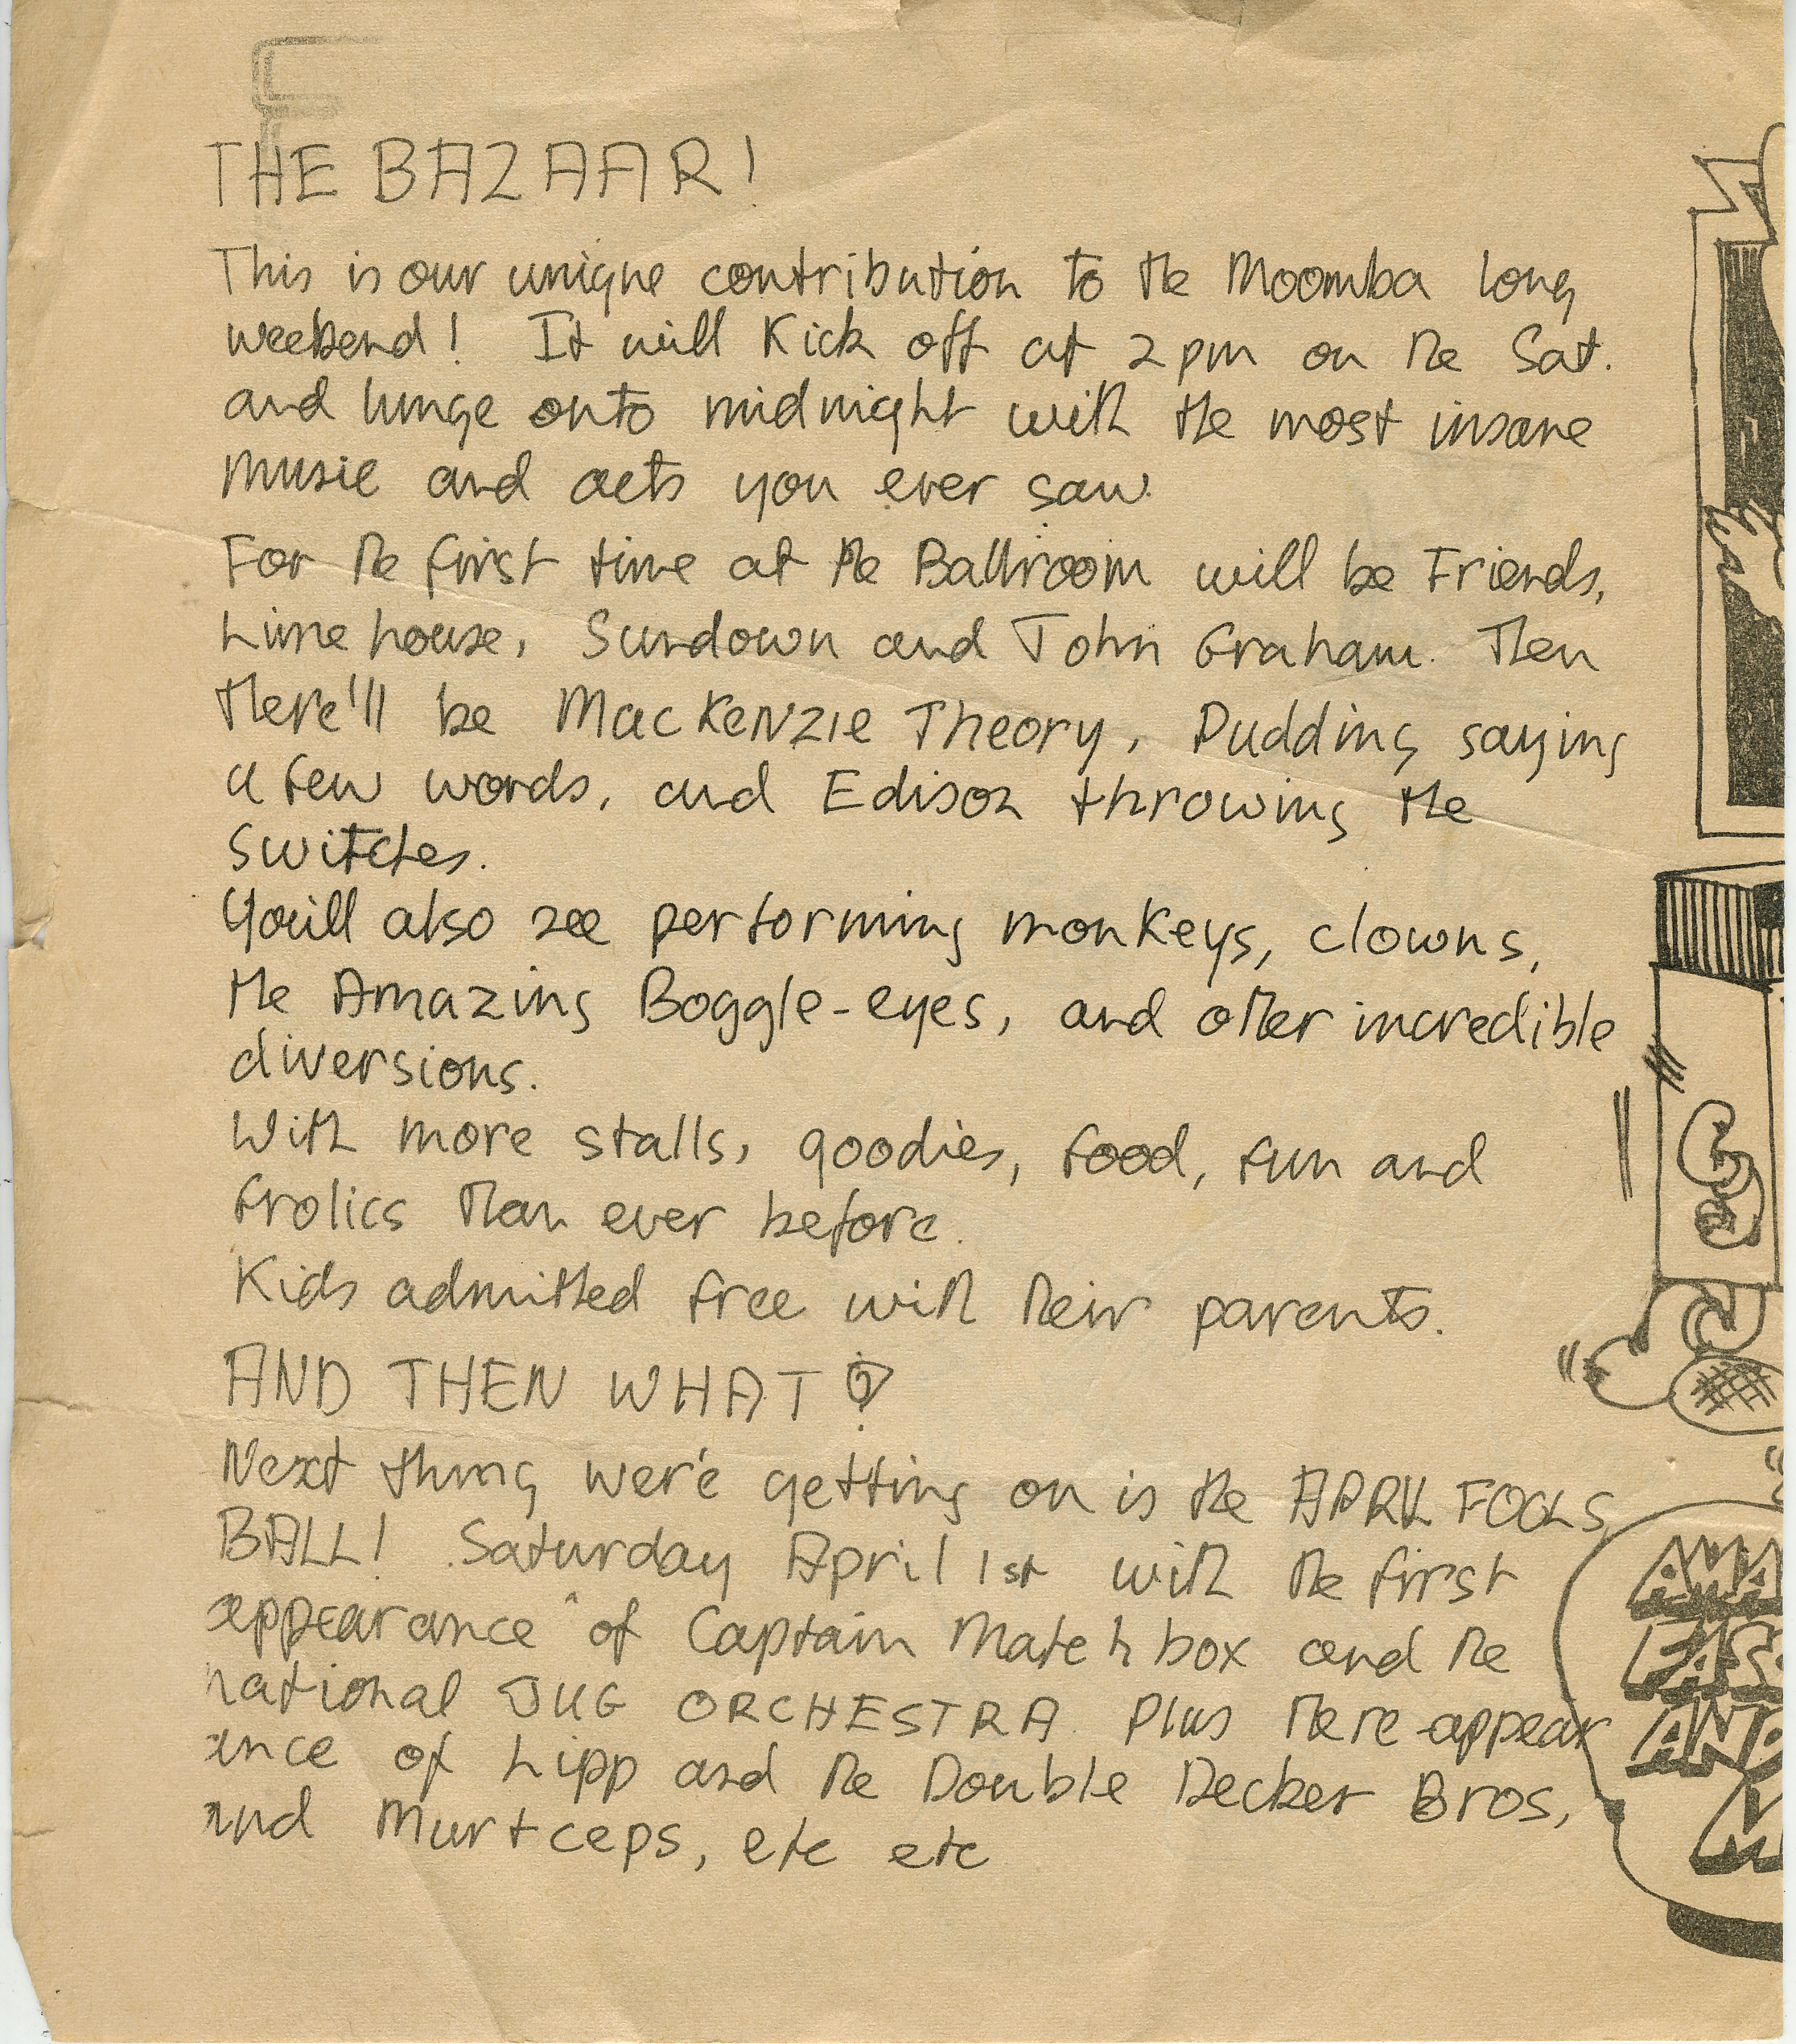 THE BAZAAR!
This is our unique contribution to the Moomba long
weekend! It will kick off at 2pm on the Sat.
and lunge onto midnight with the most insane
music and acts you ever saw.
For the first time at the Ballroom will be Friends,
Lime house, Sundown and John Graham. Then
there'll be MacKenzie Theory, Pudding saying
a few words, and Edison throwing the
switches.
You'll also see performing monkeys, clowns,
the Amazing Boggle-eyes, and other incredible
diversions.
With more stalls, goodies, food, fun and
frolics than ever before.
Kids admitted free with their parents.
AND THEN WHAT?
Next thing wer'e getting on is the APRIL FOOLS
BALL! Saturday April 1st with the first
appearance of Captain Matchbox and the
national JUG ORCHESTRA. Plus there appear
ance of Lipp and the Double Decker Bros,
and Murtceps, etc etc
AMA
FAS
AND
M